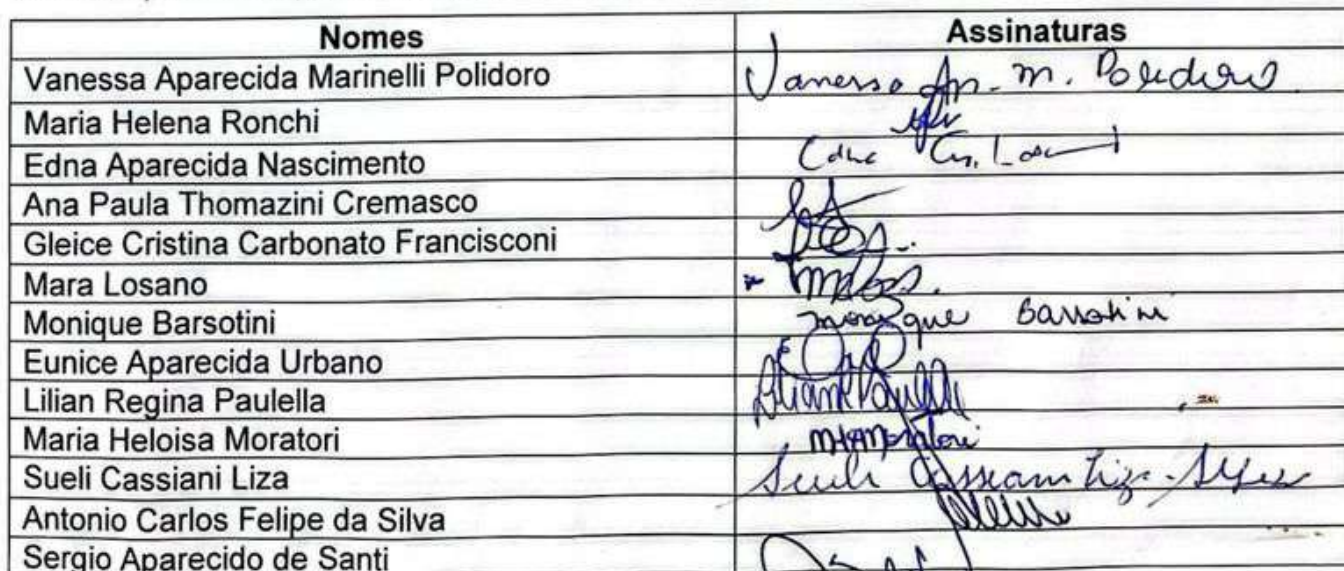 Nomes Assinaturas
Vanessa Aparecida Marinelli Polidoro Vanessa Ap. M. Polidoro
Maria Helena Ronchi
Edna Aparecida Nascimento Edna
Ana Paula Thomazini Cremasco
Gleice Cristina Carbonato Francisconi
Mara Losano
Monique Barsotini Monique Barsotini
Eunice Aparecida Urbano
Lilian Regina Paulella Lilian Paulella
Maria Heloisa Moratori MHMoratori
Sueli Cassiani Liza Sueli Cassiani Liza
Antonio Carlos Felipe da Silva
Sergio Aparecido de Santi